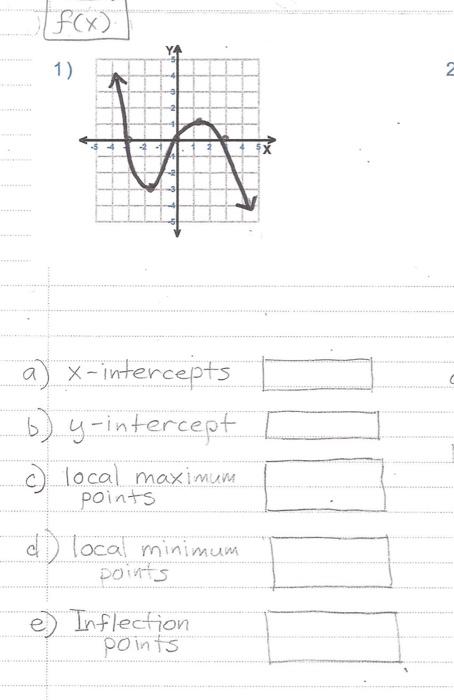 f(x)
1)
2
Y
5
4
3
2
1
-5 -4 -2 -1 1 2 4 5 X
-1
-2
-3
-4
-5
a) x-intercepts
b) y-intercept
c) local maximum
points
d) local minimum
points
e) Inflection
points